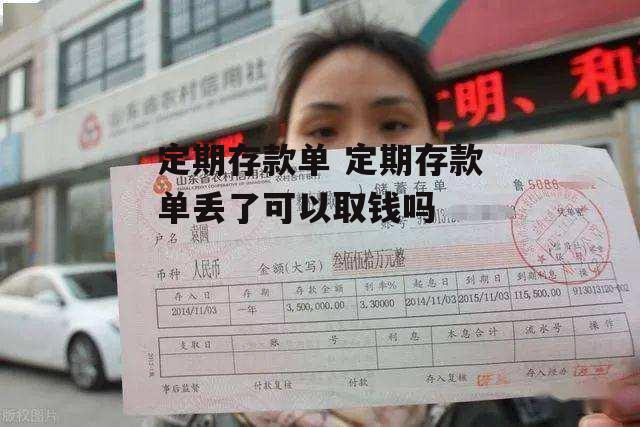 山东省农村信用社
文明、和
定期存款单 定期存款
单丢了可以取钱吗
山东省农村信用社
储蓄存单
鲁5086
户名 袁圆
币种 人民币 金额(大写) 叁佰伍拾万元整
存入日 存期 存款金额 利率% 起息日 到期日 到期利息
2014/11/03 一年 3,500,000.00 3.30000 2014/11/03 2015/11/03 115,500.00 913013120-002
支取日 账号 利息 本息合计 流水号 操作
事后监督 付款复核 付款 存入复核 存入经办
版权图片